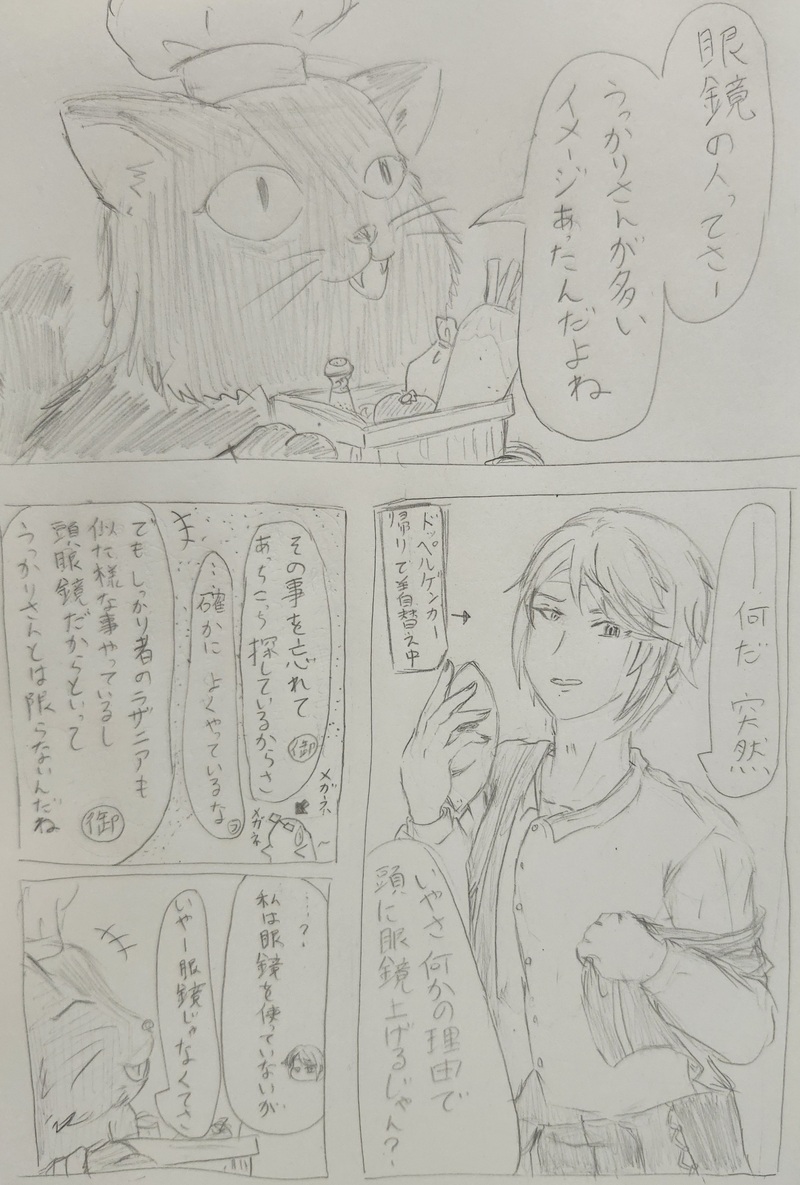 眼鏡の人ってさー
うっかりさんが多い
イメージあったんだよね
――何だ 突然
ドッペルゲンガー
帰りで着替え中
→
いやさ何かの理由で
頭に眼鏡上げるじゃん？
その事を忘れて
あっちこっち探しているからさ
御
…確かに よくやっているな
ラ
メガネ
メガネ
でもしっかり者のラザニアも
似た様な事やっているし
頭眼鏡だからといって
うっかりさんとは限らないんだね
御
……？
私は眼鏡を使っていないが
いやー眼鏡じゃなくてさ